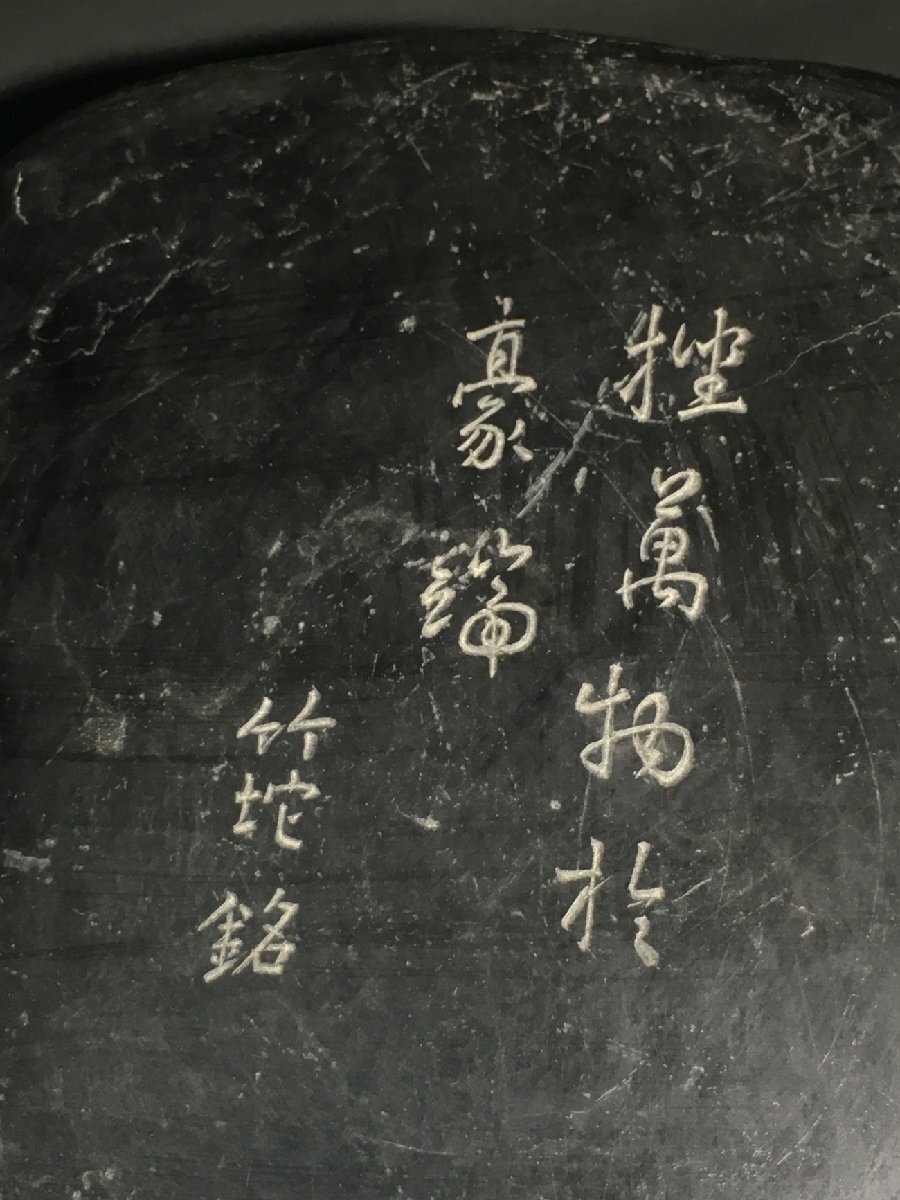 挫萬物於
豪端
竹垞銘